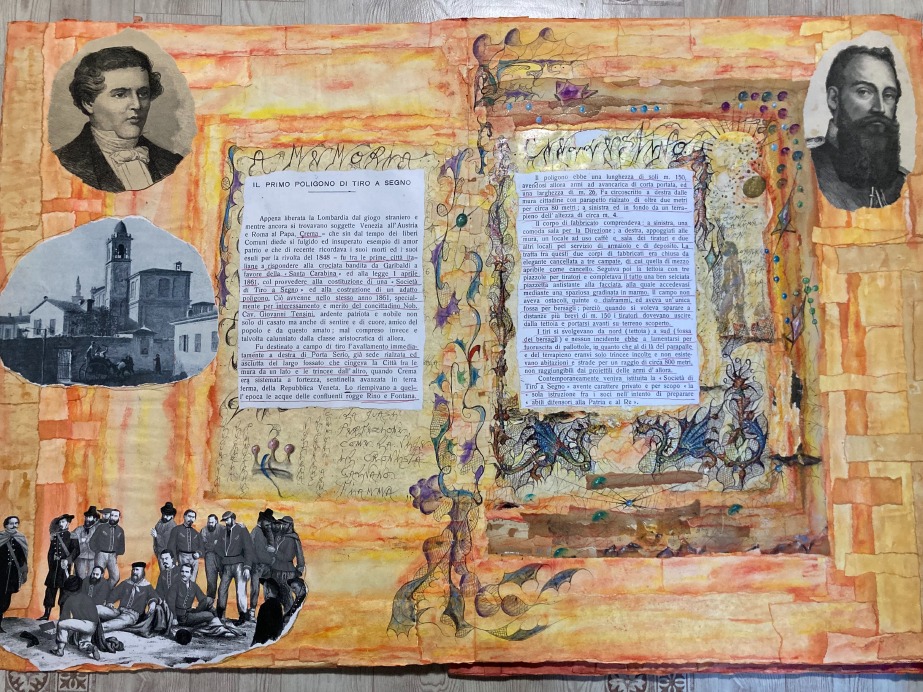 A MEMORIA
IL PRIMO POLIGONO DI TIRO A SEGNO
Appena liberata la Lombardia dal giogo straniero e
mentre ancora si trovavano soggette Venezia all'Austria
e Roma al Papa, Crema - che sin dal tempo dei liberi
Comuni diede sì fulgido ed insuperato esempio di amor
patrio e che di recente ricordava i suoi morti ed i suoi
esuli per la rivolta del 1848 - fu tra le prime città ita-
liane a rispondere alla crociata bandita da Garibaldi a
favore della « Santa Carabina » ed alla legge 1 aprile
1861, col provvedere alla costituzione di una « Società
di Tiro a Segno » ed alla costruzione di un adatto
poligono. Ciò avvenne nello stesso anno 1861, special-
mente per interessamento e merito del concittadino Nob.
Cav. Giovanni Tensini, ardente patriota e nobile non
solo di casato ma anche di sentire e di cuore, amico del
popolo e da questo amato; mal compreso invece e
talvolta calunniato dalla classe aristocratica di allora.
Fu destinato a campo di tiro l'avallamento immedia-
tamente a destra di Porta Serio, già sede rialzata ed
asciutta del largo fossato che cingeva la Città fra le
mura da un lato e le trincee dall'altro, quando Crema
era sistemata a fortezza, sentinella avanzata in terra
ferma, della Repubblica Veneta. Lo riempivano a quel-
l'epoca le acque delle confluenti rogge Rino e Fontana.
Il poligono ebbe una lunghezza di soli m. 150,
avendosi allora armi ad avancarica di corta portata, ed
una larghezza di m. 26. Fu circoscritto a destra dalle
mura cittadine con parapetto rialzato di oltre due metri
per circa 80 metri; a sinistra ed in fondo da un terra-
pieno dell'altezza di circa m. 4.
Il corpo di fabbricato comprendeva; a sinistra, una
comoda sala per la Direzione; a destra, appoggiati alle
mura, un locale ad uso caffè e sala dei tiratori e due
altri locali per servizio di armaiolo e di deposito. La
tratta fra questi due corpi di fabbricati era chiusa da
elegante cancellata a tre campate, di cui quella di mezzo
apribile come cancello. Seguiva poi la tettoia con tre
piazzole per tiratori e completava il tutto una ben selciata
piazzetta antistante alla facciata, alla quale accedevasi
mediante una spaziosa gradinata in marmo. Il campo non
aveva ostacoli, quinte o diaframmi, ed aveva un'unica
fossa per bersagli; perciò, quando si voleva sparare a
distanze più brevi di m. 150 i tiratori dovevano uscire
dalla tettoia e portarsi avanti su terreno scoperto.
I tiri si svolgevano da nord (tettoia) a sud (fossa
dei bersagli) e nessun incidente ebbe a lamentarsi per
fuoruscita di pallottole, in quanto che al di là del parapalle
e del terrapieno eransi solo trincee incolte e non esiste-
vano abitazioni e strade per un raggio di circa 800 metri,
non raggiungibili dai proiettili delle armi d'allora.
Contemporaneamente veniva istituita la « Società di
Tiro a Segno » avente carattere privato e per scopo « la
« sola istruzione fra i suoi nell'intento di preparare
« abili difensori alla Patria e al Re ».